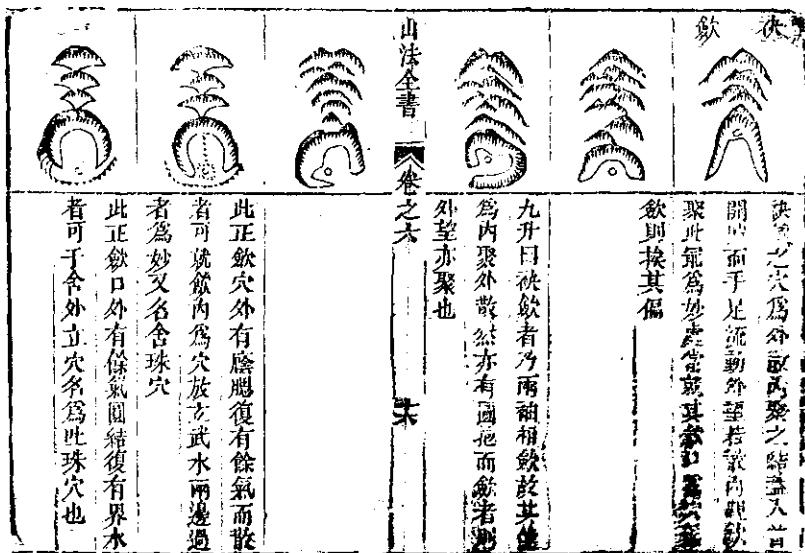 袂歛
之穴為外散內聚之結蓋入首
開口而手足流動外望若散內觀歛
聚此為妙處當就其歛口為穴
歛則挨其偏
九升曰袂歛者乃兩袖相歛於其
為內聚外散然亦有圓抱而歛者則
外望亦聚也
山法全書
卷之六
此正歛穴外有陰腮復有餘氣而散
者可就歛內為穴放玄武水兩邊過
者為妙又名含珠穴
此正歛口外有餘氣圓結復有界水
者可于含外立穴名為吐珠穴也